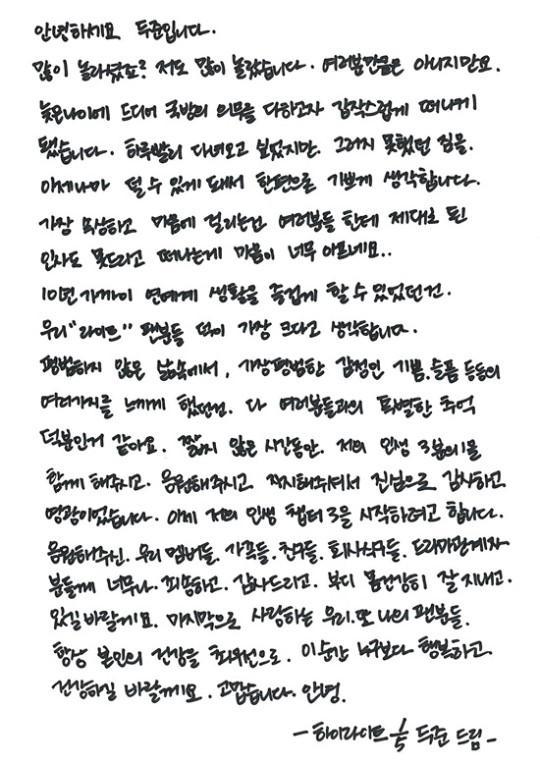 안녕하세요 두준입니다.
많이 놀라셨죠? 저도 많이 놀랐습니다. 여러분만큼은 아니지만요.
늦은나이에 드디어 국방의 의무를 다하고자 갑작스럽게 떠나게
됐습니다. 하루빨리 다녀오고 싶었지만. 그러지 못했던 짐을.
이제나마 덜 수 있게 돼서 한편으로 기쁘게 생각합니다.
가장 속상하고 마음에 걸리는건 여러분들 한테 제대로 된
인사도 못드리고 떠나는게 마음이 너무 아프네요..
10년 가까이 연예계 생활을 즐겁게 할 수 있었던건.
우리 "라이트" 팬분들 덕이 가장 크다고 생각합니다.
평범하지 않은 삶속에서, 가장평범한 감정인 기쁨.슬픔 등등의
여러가지를 느끼게 했던건. 다 여러분들과의 특별한 추억
덕분인거 같아요. 짧지 않은 시간동안. 저의 인생 3분의1을
함께 해주시고. 응원해주시고. 지지해주셔서 진심으로 감사하고
영광이었습니다. 이제 저의 인생 챕터 3을 시작하려고 합니다.
응원해주신. 우리 멤버들. 가족들. 친구들. 회사식구들. 드라마관계자
분들께 너무나. 죄송하고. 감사드리고. 부디 몸건강히 잘 지내고.
있길바랄게요. 마지막으로 사랑하는 우리.또 나의 팬분들.
항상 본인의 건강을 최우선으로. 이순간 누구보다 행복하고.
건강하길 바랄께요. 고맙습니다. 안녕.
-하이라이트 윤두준 드림-